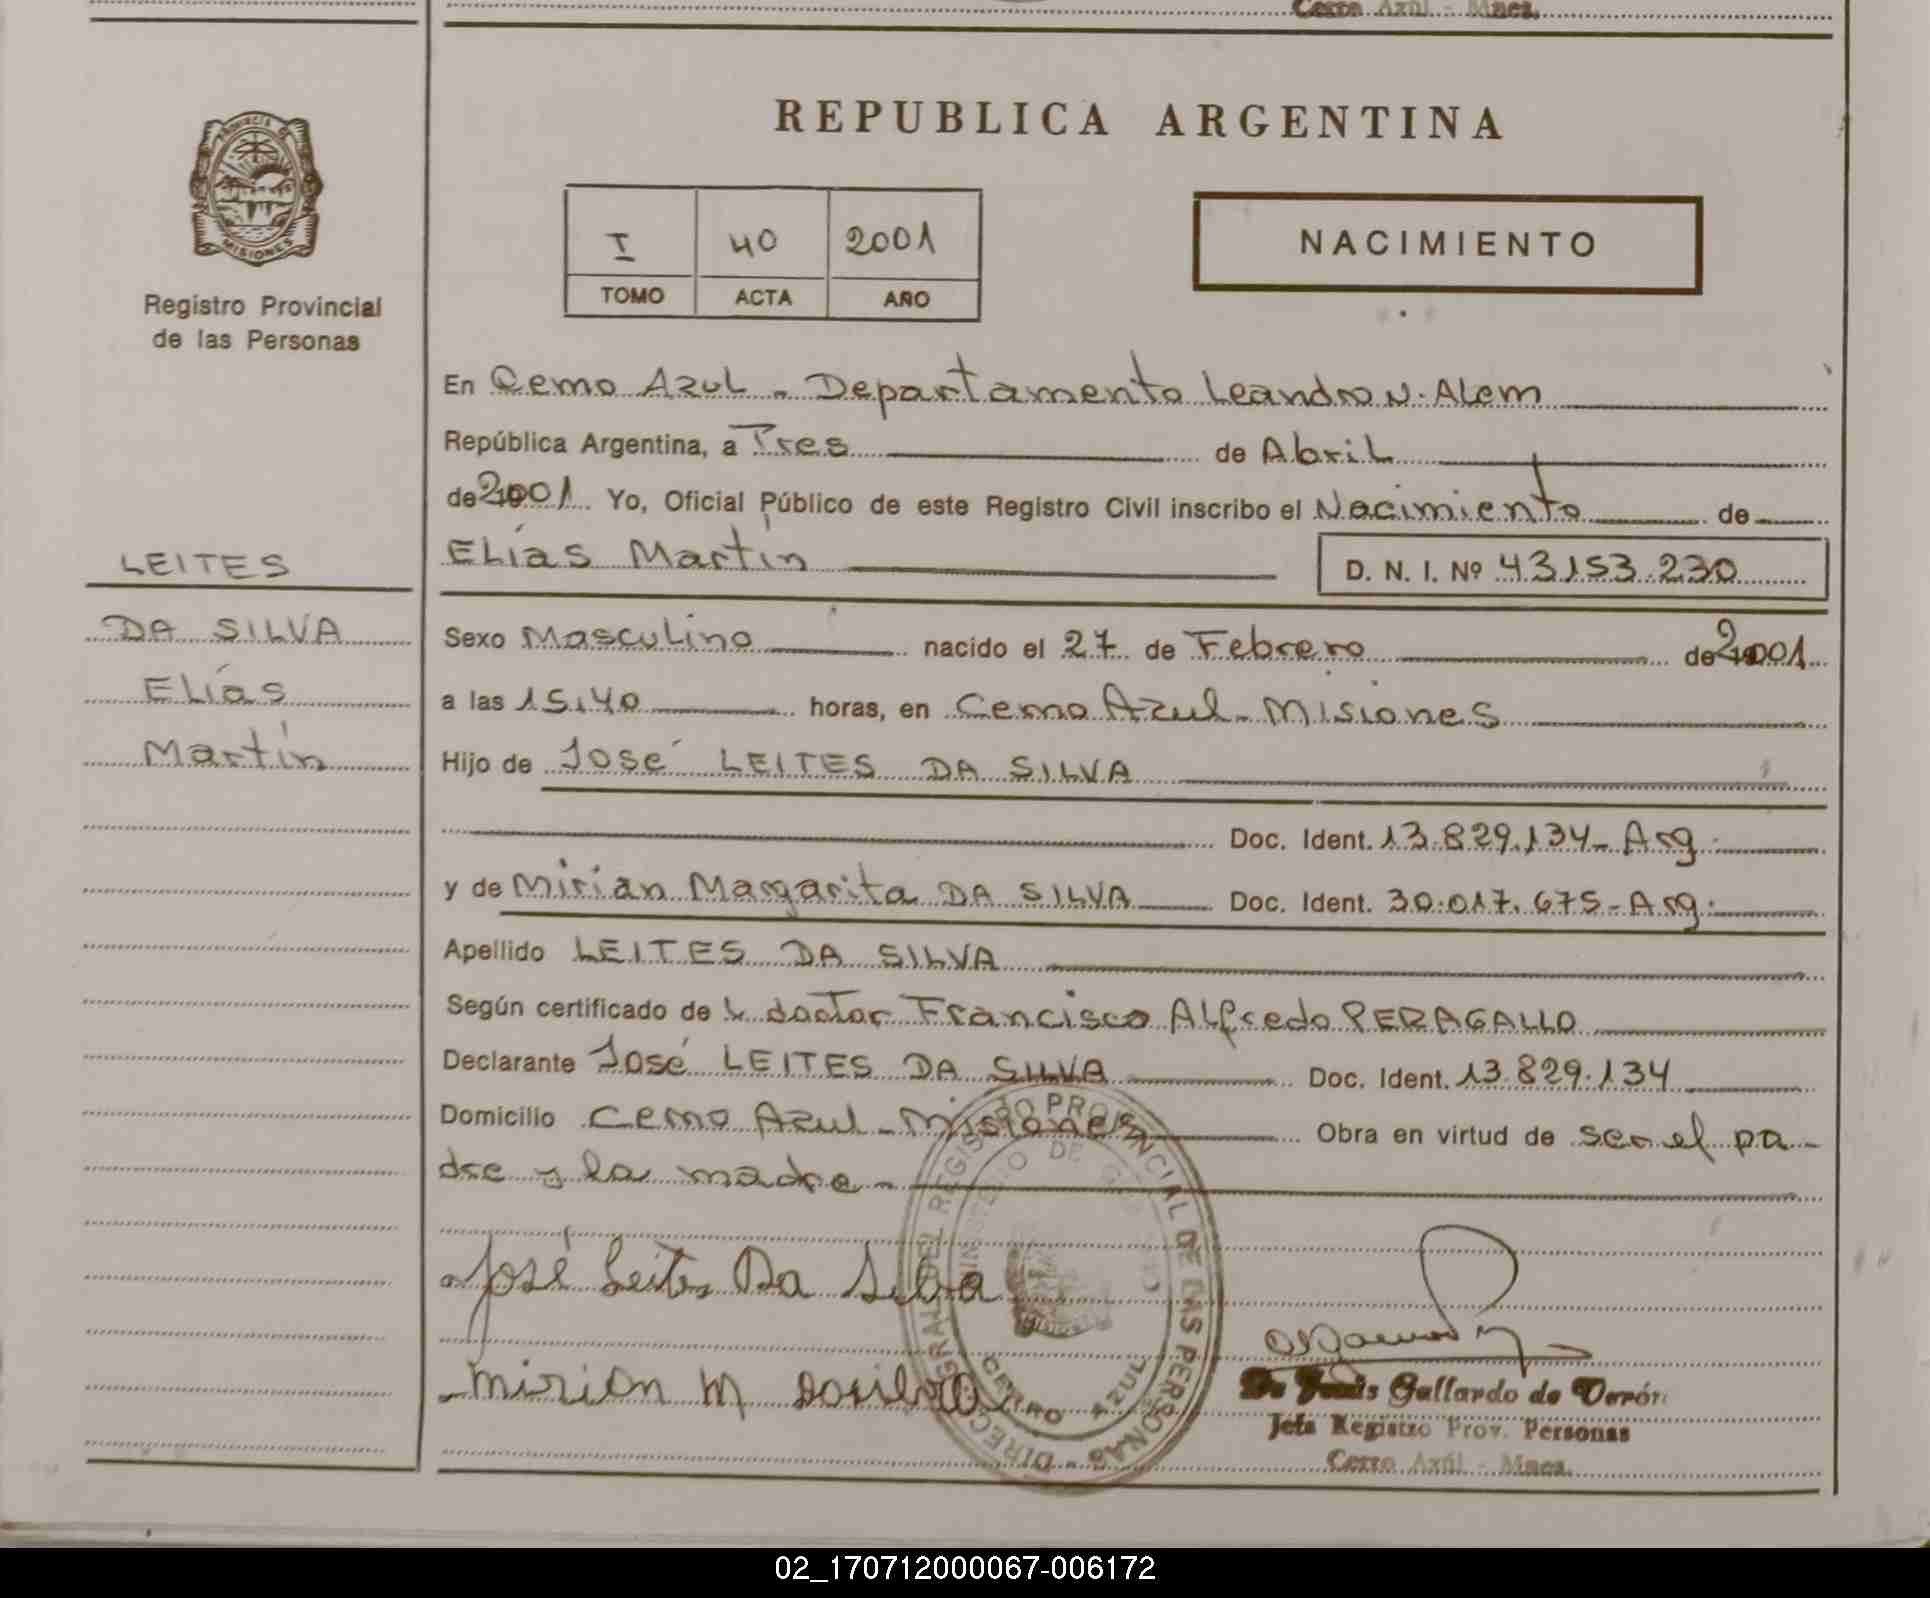 Cerro Azúl - Mnes.
REPUBLICA ARGENTINA
PROVINCIA DE
MISIONES
Registro Provincial
de las Personas
I 40 2001
TOMO ACTA AÑO
NACIMIENTO
En Cerro Azul - Departamento Leandro N. Alem
República Argentina, a Tres de Abril
de 2001 Yo, Oficial Público de este Registro Civil inscribo el Nacimiento de
Elías Martín D. N. I. Nº 43.153.230
LEITES
DA SILVA
Elías
Martín
Sexo Masculino nacido el 27 de Febrero de 2001
a las 15,40 horas, en Cerro Azul - Misiones
Hijo de José LEITES DA SILVA
Doc. Ident. 13.829.134 - Arg.
y de Mirian Margarita DA SILVA Doc. Ident. 30.017.675 - Arg.
Apellido LEITES DA SILVA
Según certificado de doctor Francisco Alfredo PERAGALLO
Declarante José LEITES DA SILVA Doc. Ident. 13.829.134
Domicilio Cerro Azul - Misiones Obra en virtud de ser el pa-
dre y la madre -
José Leites Da Silva
Mirian M Dasilva
DIRECC GRAL DEL REGISTRO PROVINCIAL DE LAS PERSONAS
MINISTERIO DE
CERRO AZUL
Gallardo de Verón
Jefa Registro Prov. Personas
Cerro Azúl - Mnes.
02_170712000067-006172